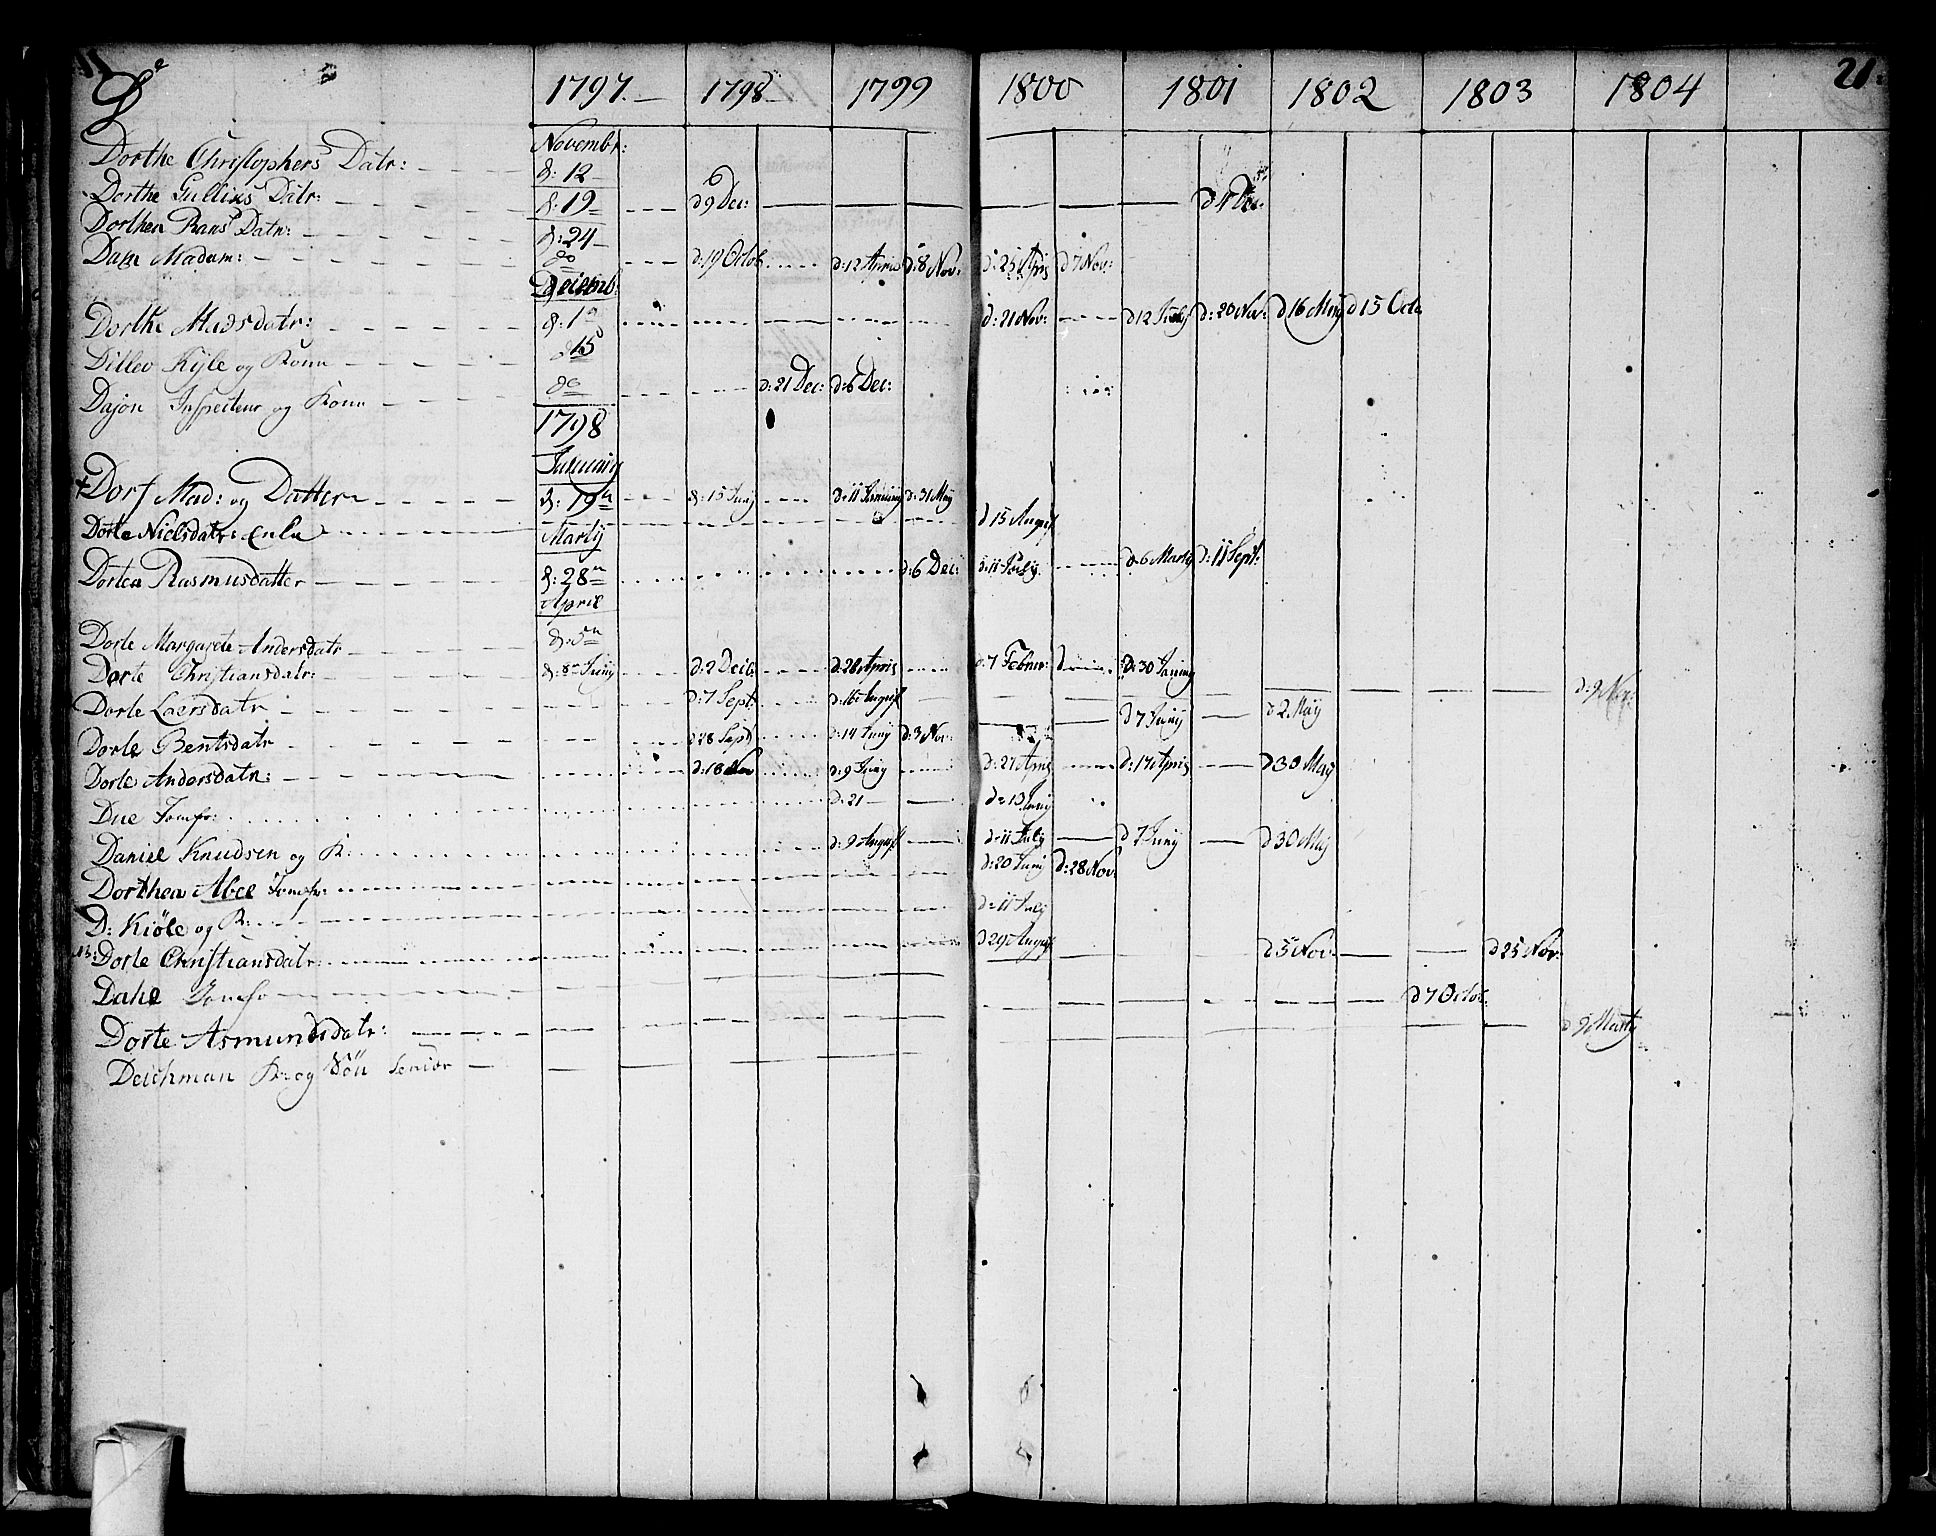 D 1797. 1798 1799 1800 1801 1802 1803 1804 21.
Novembr:
Dorthe Christophers Datr: d: 12
Dorthe Gullixs Datr: d: 19 d 9 Dec: d 1 Dec:
Dorthea Rans Datr: d: 24
Dahl Madam: do d: 19 Octob d: 12 April d: 8 Nov: d: 25 Apris d 7 Nov:
Decemb:
Dorthe Madsdatr: d: 1 d: 21 Nov: d 12 July d: 20 Nov: d 16 May d 15 Octo
Ditlev Kyle og Kone d 15
Dajon Inspecteur og Kone do d: 21 Dec: d: 6 Dec:
1798
January
+ Dorf Mad: og Datter d: 19 d: 15 Junj d: 11 January d: 31 Maij
Dorte Nielsdatr: Enke Martij d 15 August
Dortea Rasmusdatter d: 28 d: 6 Dec: d: 11 July d: 6 Martij d: 11 Sept:
April
Dorte Margarete Andersdatr d: 5
Dorte Christiansdatr: d: 8 Junij d: 2 Decb: d: 28 Apris d: 7 Febru: d d: 30 Januy
Dorte Laersdatr d: 7 Sept: d: 16 August d: 9 Nov:
Dorte Bentsdatr d 28 Sept d: 14 Junij d: 3 Nov: d 7 Junij d 2 Maij
Dorte Andersdatr: d: 18 Nov d: 9 Junij d: 27 Apris d: 17 Apris d 30 Maij
Due Jomfr: d: 21 d: 13 Junij
Daniel Knudsen og K: d: 9 August d: 11 July d 7 Junij d 30 Maij
Dorthea Abel Jomfr: d: 20 Junij d: 28 Nov:
D: Kiöle og K: d: 11 July
NB: Dorte Christiansdatr: d 29 August d 5 Nov: d 25 Nov:
Dahl Jomfr d 7 Octob:
Dorte Asmundsdatr: d 9 Martij
Deichman K: og Sön Senior